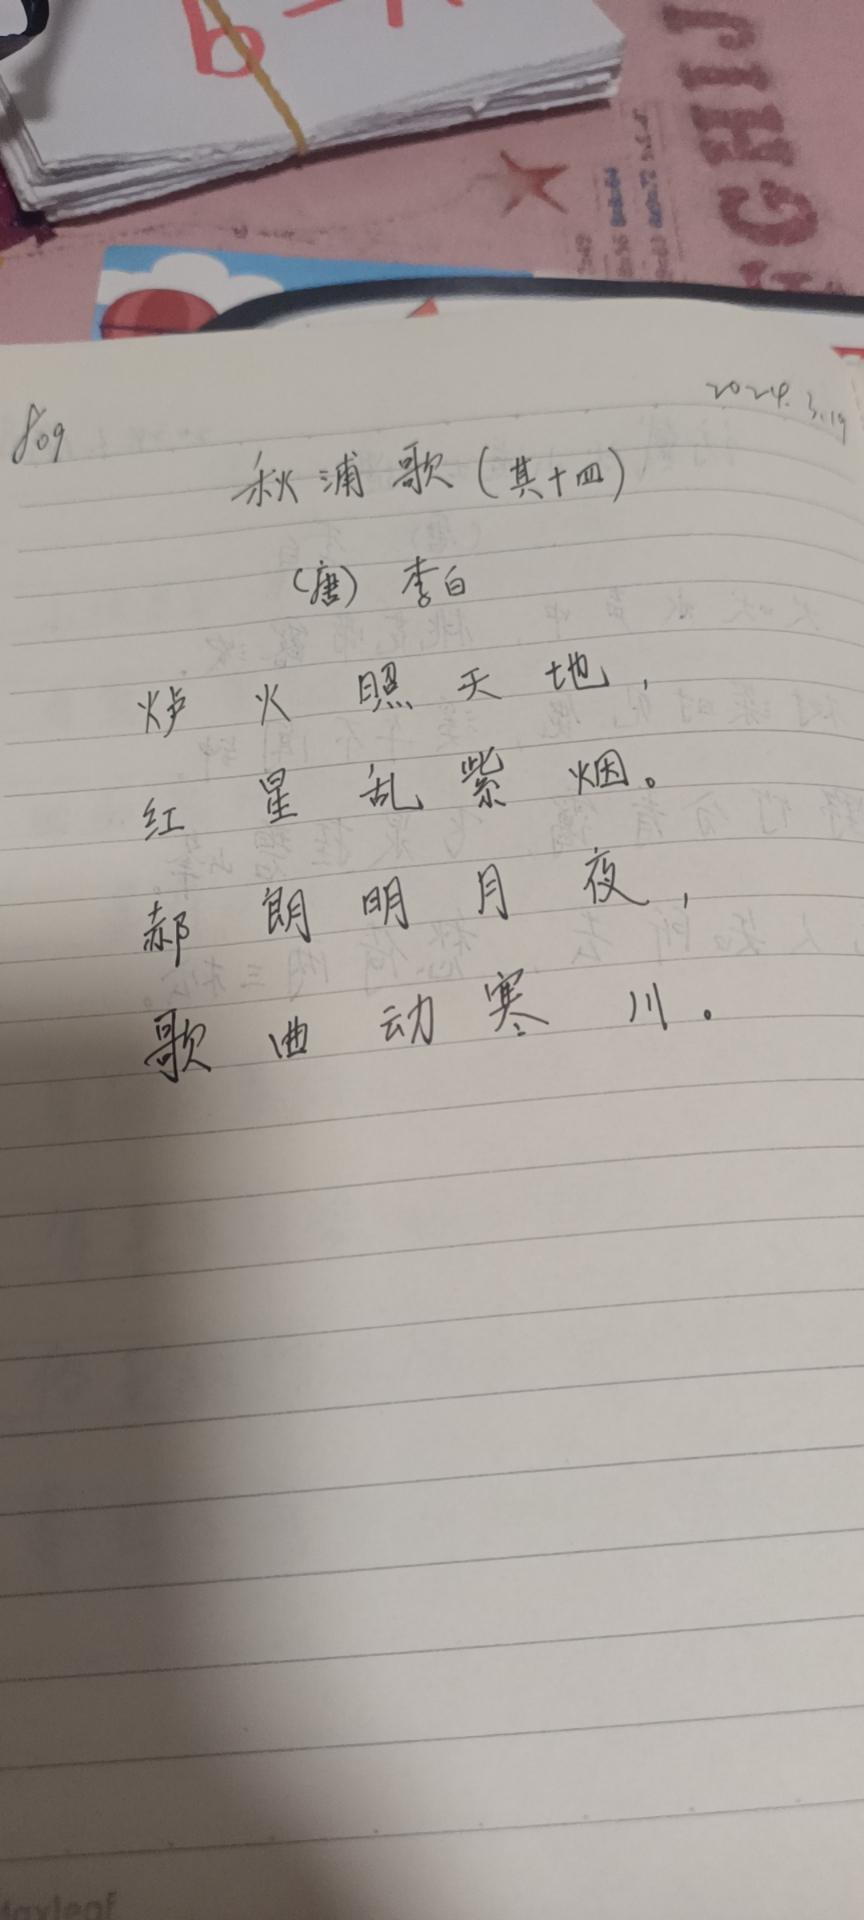 b
GHIJ
2024.3.19
809
秋浦歌(其十四)
(唐) 李白
炉火照天地,
红星乱紫烟。
郝朗明月夜,
歌曲动寒川。